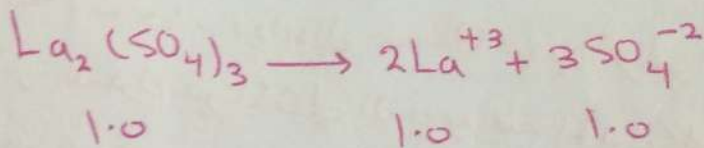 La₂(SO₄)₃ ⟶ 2La⁺³ + 3SO₄⁻²
1.0 1.0 1.0